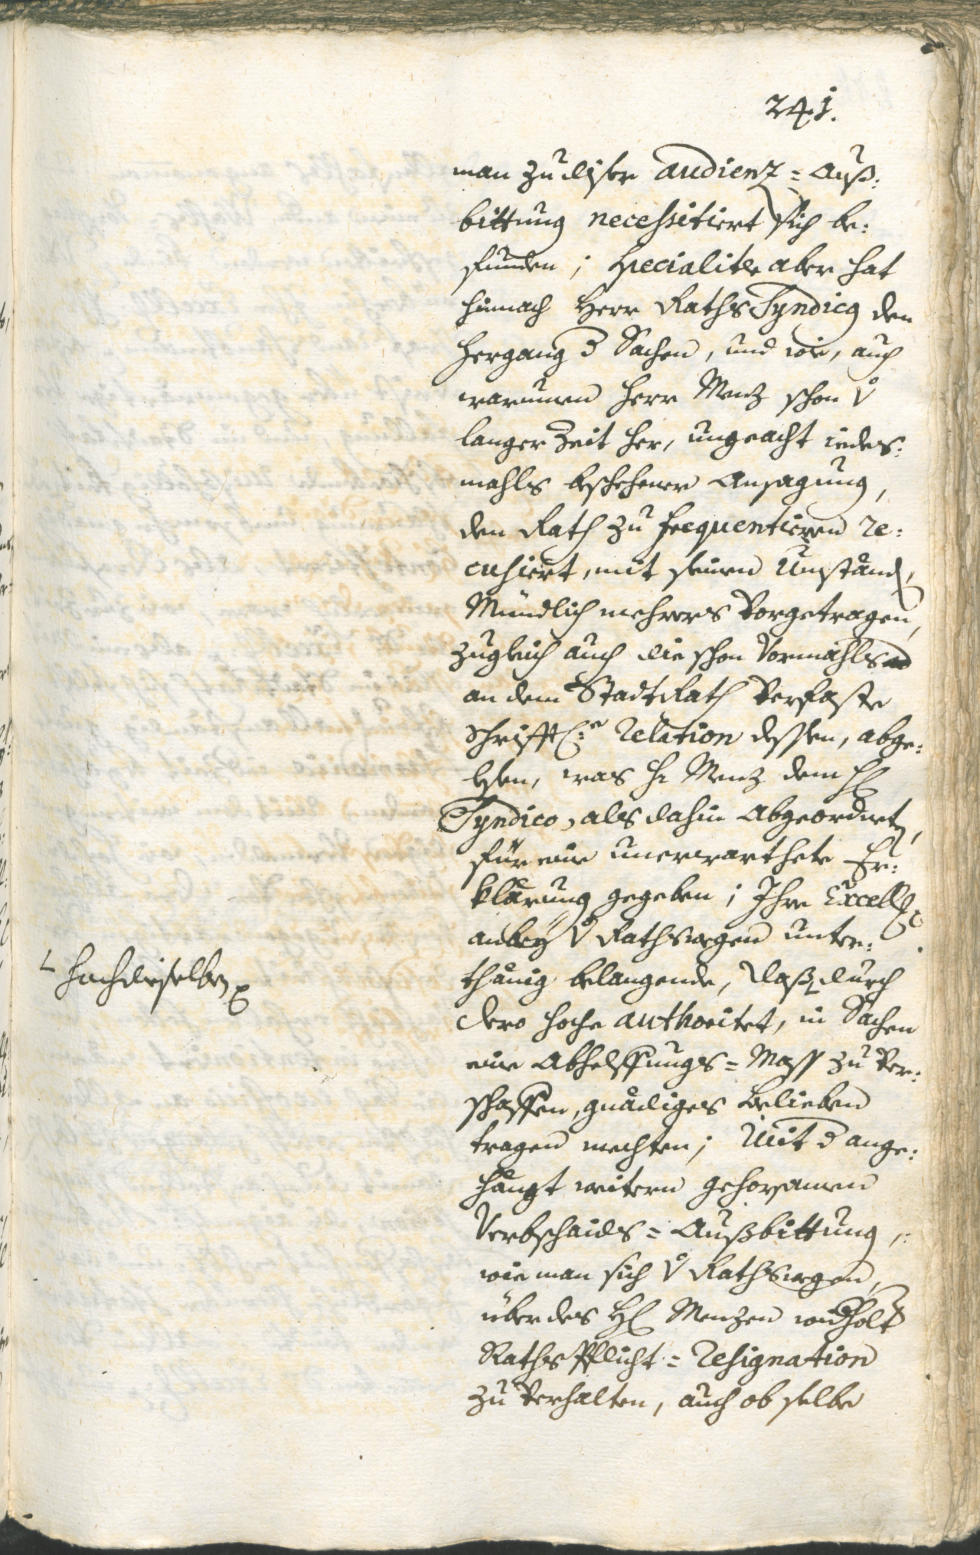 241.
man zu diser audienz=Auß:
bittung necessitiert sich be:
funden; specialiter aber hat
hinnach Herr Raths Syndicus den
Hergang d Sachen, und wie, auch
warumen Herr Menz schon v
langer Zeit her, ungeacht iedes:
mahls beschehener Ansagung,
den Rath zu frequentieren re:
cusiert, mit seinen Umständ,
Mündlich mehrers Vorgetragen,
zugleich auch die schon Vormahls
an dem StadtRath Verfaste
schrifftl: relation dessen, abge:
lesen, was H: Menz dem H
Syndico, als dahin Abgeordnet,
für eine unerwarthete Er:
klärung gegeben; Ihre Excell:
anbey v Rathswegen unter:
thänig belangende, daß durch
L hochdieselben
dero hoche authoritet, in Sachen
eine Abhelffungs=Mass zu Ver:
schaffen, gnädiges Belieben
tragen mechten; Mit d ange:
hängt weitern gehorsamen
Verbschaids=Außbittung,
wie man sich v Rathswegen,
über des H Menzen widholt
Raths Pflicht=resignation
zu Verhalten, auch ob selbe